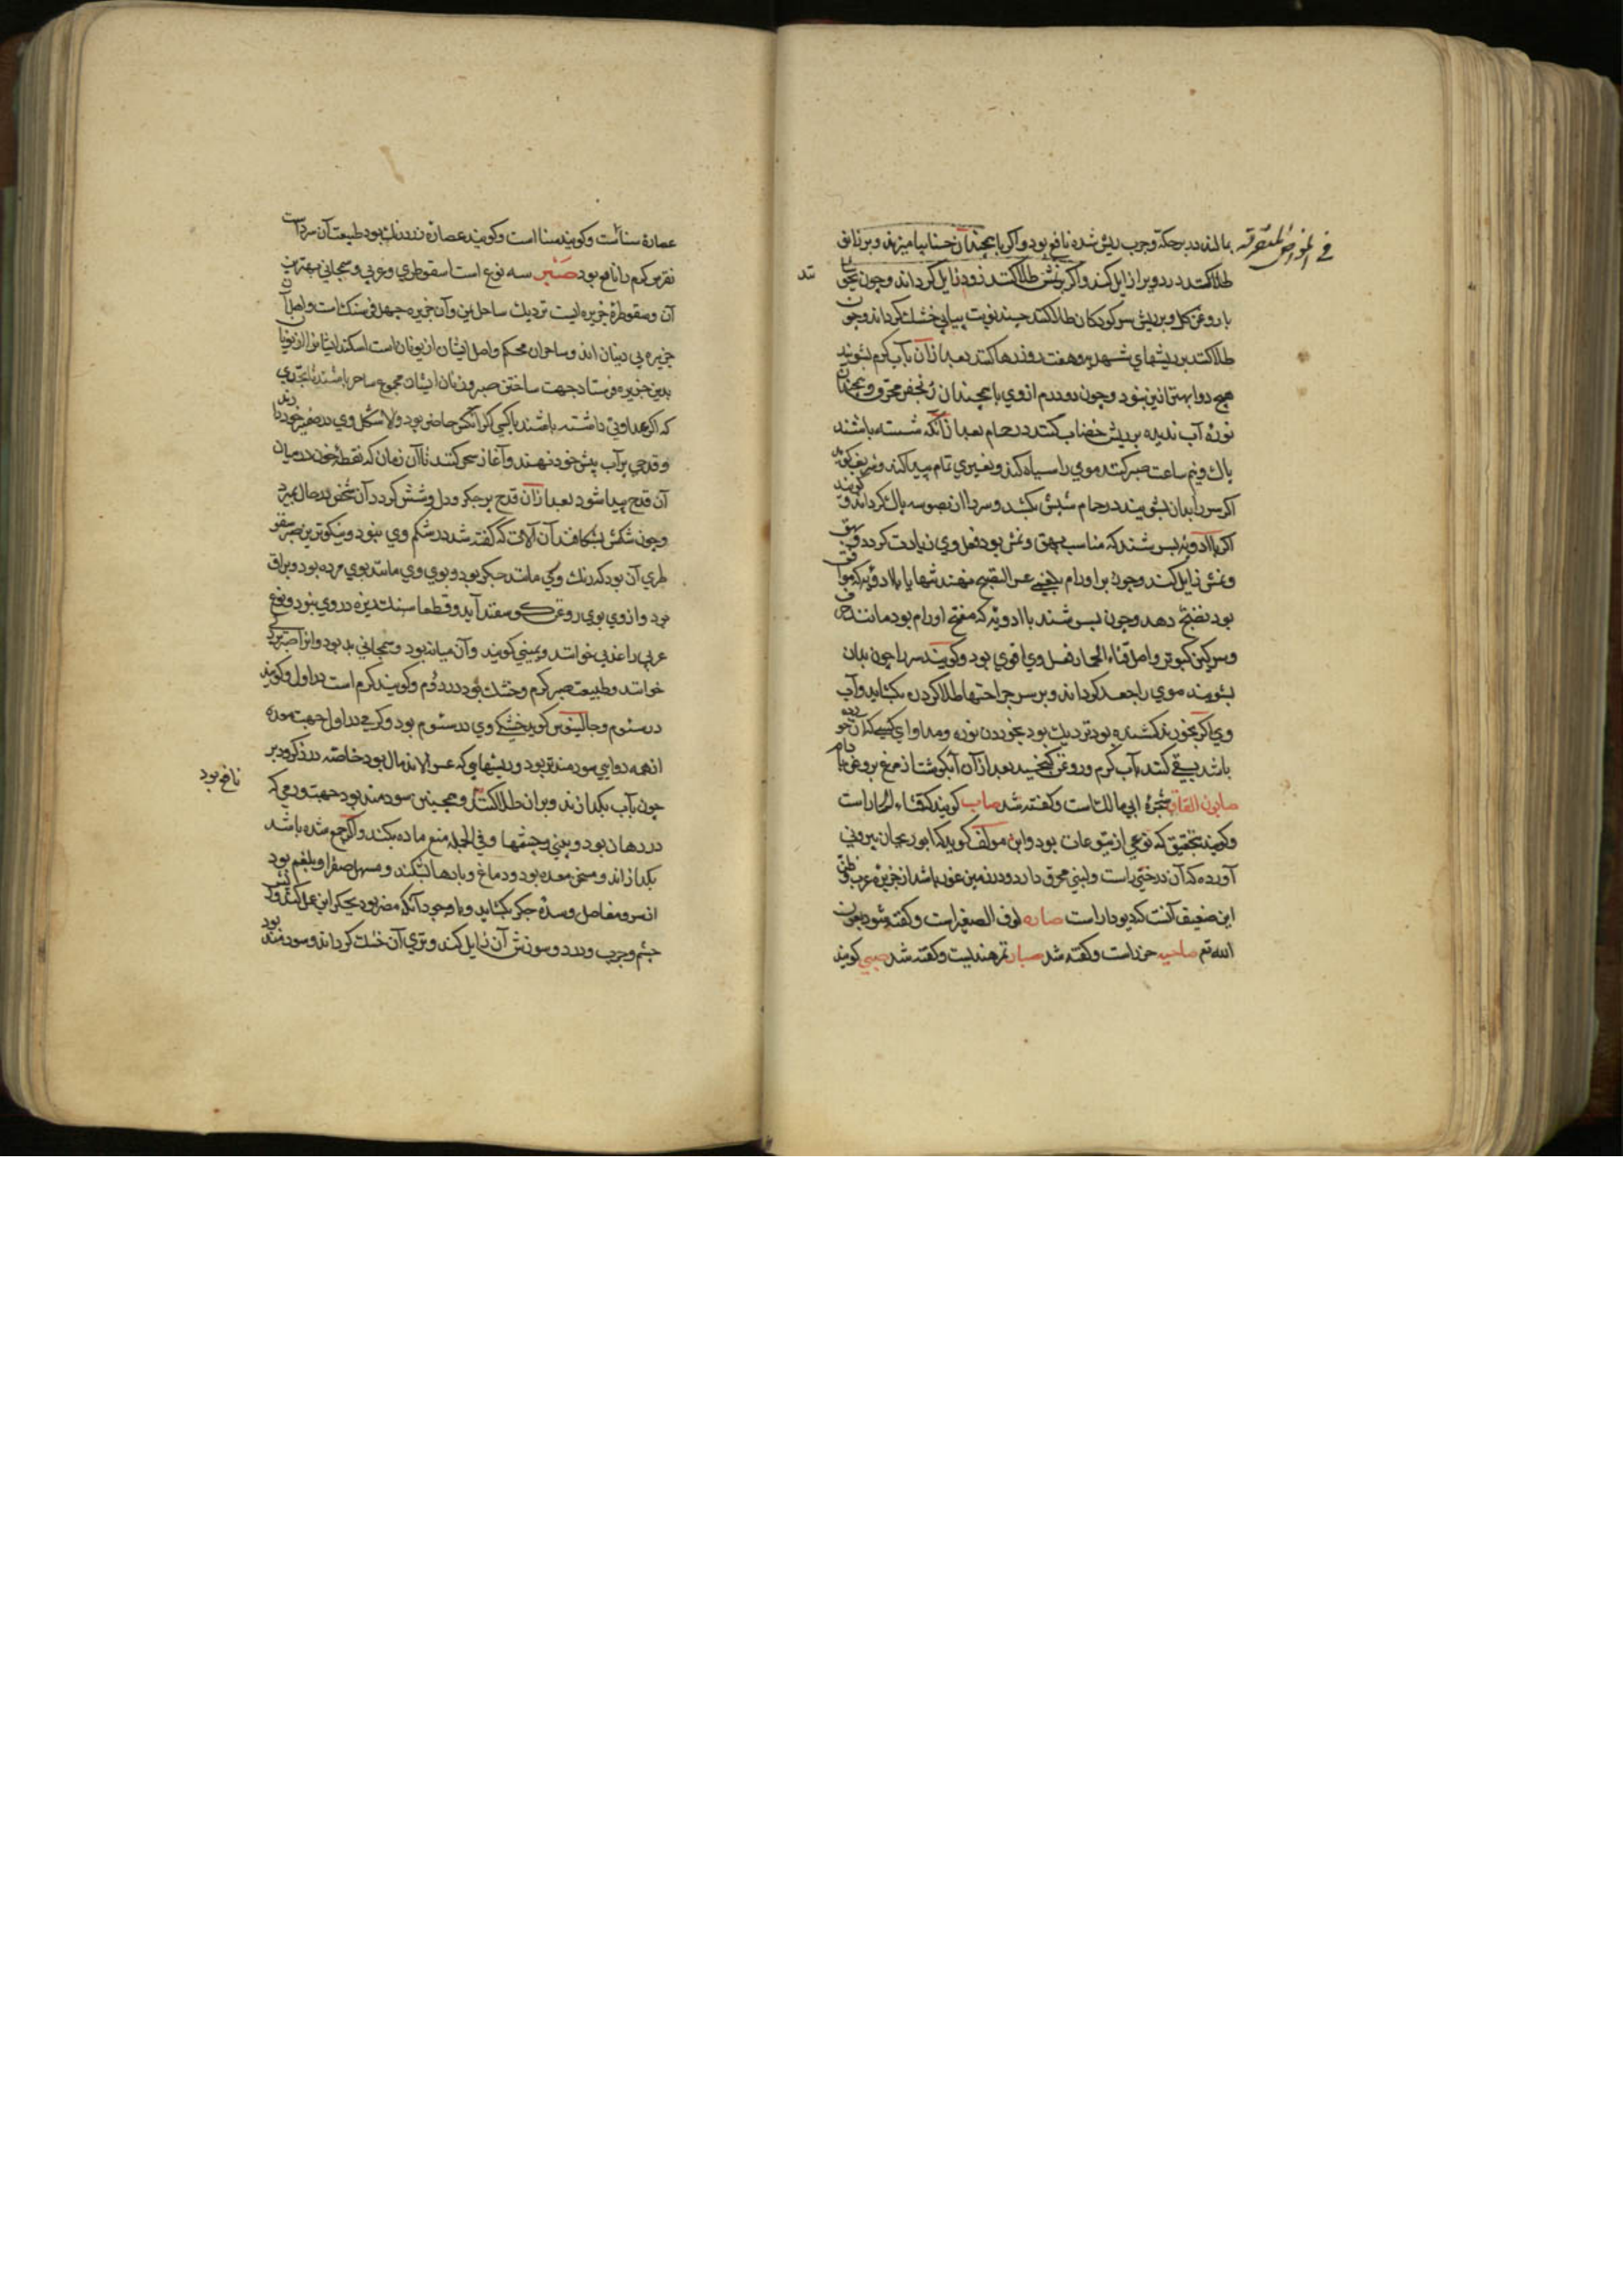 في المواضع المتفرقه
بمالند در برحكه وجرب ريش شده نافع بود واكر با همچندان حنا بياميزند وبر زانو
طلا كنند درد ويرا زايل كند واكر بر نمش طلا كنند زود زايل كرداند وجون
با روغن كل وبر ريش سر كودكان طلا كنند چند نوبت پياپي خشك كرداند وجون
طلا كنند بر ريشهاي شهديه وهفت روز رها كنند بعد از آن بآب كرم بشويند
هيچ دوا بهتر ازين نبود وچون دو درم از وي با همچندان زنجفر محرق وهمچندان
نوره آب نديده بر ريش خضاب كنند در حمام بعد از آنكه شسته باشند
يك ونيم ساعت صبر كنند موي را سياه كند وتغييري تمام پيدا كند وشريف كويد
اكر سر را بدان بشويند در حمام شپش بكشد وسر را از نصوسه پاك كرداند وكويند
اكر با ادويه بسرشند كه مناسب بهق ونمش بود فعل وي زيادت كردد وبهق
ونمش زايل كند وچون بر اورام بلغمي عسر النضج نهند تنها يا با ادويه كه موافق
بود نضج دهد وچون بسرشند با ادويه كه مفتح اورام بود مانند حرف
وسركين كبوتر واصل قثاء الحمار فعل وي اقوي بود وكويند سر را چون بدان
بشويند موي را جعد كرداند وبر سر جراحتها طلا كردن بكشايد وآب
وي اكر بخورند كشنده بود نزديك بود بخوردن نوره ومداواي كسي كه آن خورده
باشد بقي كنند بآب كرم وروغن كنجد بعد از آن آبكوشت از مرغ بروغن بادام
صابون القاق شجره ابي مالك است وكفته شد صاب كويند كه قثاء الحمار است
وكويند بتحقيق كه نوعي از يتوعات بود وابن مولف كويد كه ابو ريحان بيروني
آورده كه آن درختي است ولبني محرق دارد ودر زمين غور باشد از جزيره عرب وظن
اين ضعيف آنست كه ديودار است صاره لوف الصغير است وكفته شود بعون
الله تع صاحبه حرذ است وكفته شد صبار تمر هنديست وكفته شد صبي كويند
عصاره سنا است وكويند سنا است وكويند عصاره زردرنك بود طبيعت آن سرد است
نقرس كرم را نافع بود صبر سه نوع است اسقوطري وعربي وسمجاني بهترين
آن وسقوطره جزيره ايست نزديك ساحل يمن وآن جزيره چهل فرسنك است واهل آن
جزيره بي دينان اند وساحران محكم واصل ايشان از يونان است اسكندر ايشانرا از يونان
بدين جزيره فرستاد جهت ساختن صبر وزنان ايشان مجموع ساحر باشند تا بحدي
كه اكر عداوتي داشته باشند با كسي اكر آنكس حاضر بود والا شكل وي در ضمير خود دارند
وقدحي پر آب پيش خود نهند وآغاز سحر كنند تا آن زمان كه نقطه خون در ميان
آن قدح پيدا شود بعد از آن قدح پر جكر ودل وشش كردد آن شخص در حال بميرد
وچون شكمش بشكافند آن آلات كه كفته شد در شكم وي نبود ونيكوترين صبر سقو
طري آن بود كه رنك وي مانند جكر بود وبوي وي مانند بوي مر ده بود وبراق
بود واز وي بوي روغن كوسفند آيد وقطعا سنك ريزه در وي نبود ونوع
عربي را عدني خوانند ويمني كويند وآن ميانه بود وسمجاني بد بود وانرا صبر
خوانند وطبيعت صبر كرم وخشك بود در دوم وكويند كرم است در اول وكويند
در سئوم وجالينوس كويد خشكي وي در سئوم بود وكرمي در اول جهت معده
از همه دوايي سودمندتر بود وريشهايي كه عسر الاندمال بود خاصه در ذكر ودبر نافع بود
چون بآب بكدازند وبر ان طلا كنند وهمچنين سودمند بود جهت ورمي كه
در دهان بود وبيني وچشمها وفي الجمله منع ماده بكند واكر جمع شده باشد
بكدازاند ومسخن معده بود ودماغ وبادها بشكند ومسهل صفرا وبلغم بود
از سر ومفاصل وسده جكر بكشايد وبا وجود آنكه مضر بود بجكر اين عمل كند وريش
چشم وجرب ودرد وسوزش آن زايل كند وتري آن خشك كرداند وسودمند بود